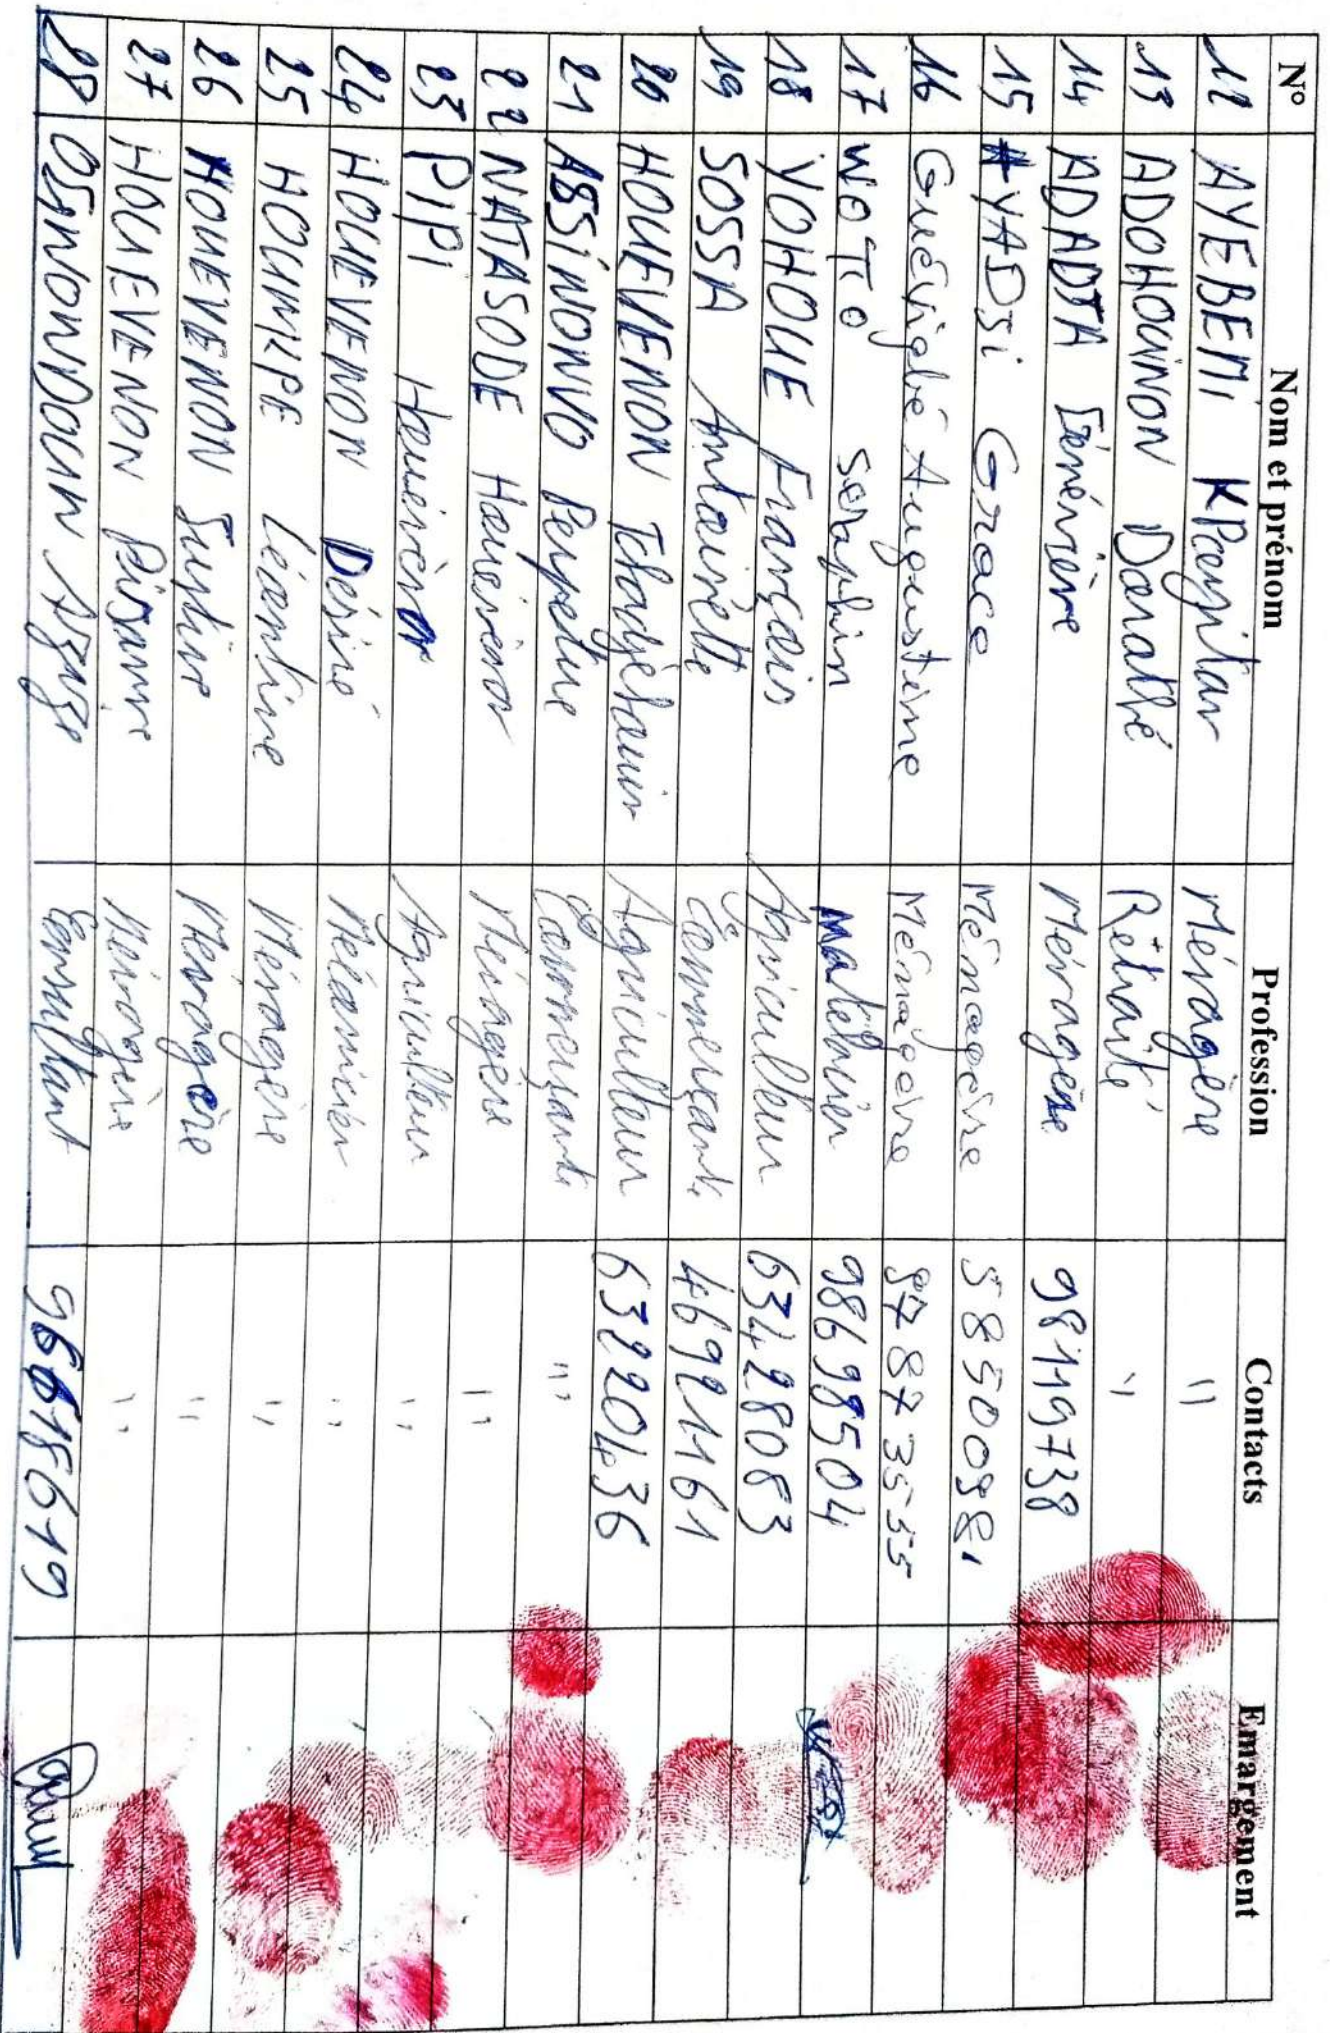 N° Nom et prénom Profession Contacts Emargement
12 AYEBEMI Ménagère "
13 ADOHOUINON Donathé Rétraité "
14 ADADJA Ménagère 98119738
15 AYADJi Grace Ménagère 58500981
16 Guévigbé Augustine Ménagère 97873555
17 WOTTO Seraphin Matelwien 98698504
18 YOHOUE François Agriculteur 63428083
19 SOSSA Antoinette Commerçante 46921161
20 HOUEVENON Agriculteur 63220436
21 ASSiNONVO Perpetue Commerçante "
22 NATASODE Ménagère "
23 PIPI Agriculteur "
24 HOUEVENON Désiré Mécanicien "
25 HOUNKPE Léontine Ménagère "
26 HOUEVENON Justine Ménagère "
27 HOUEVENON Ménagère "
28 Consultant 96618619